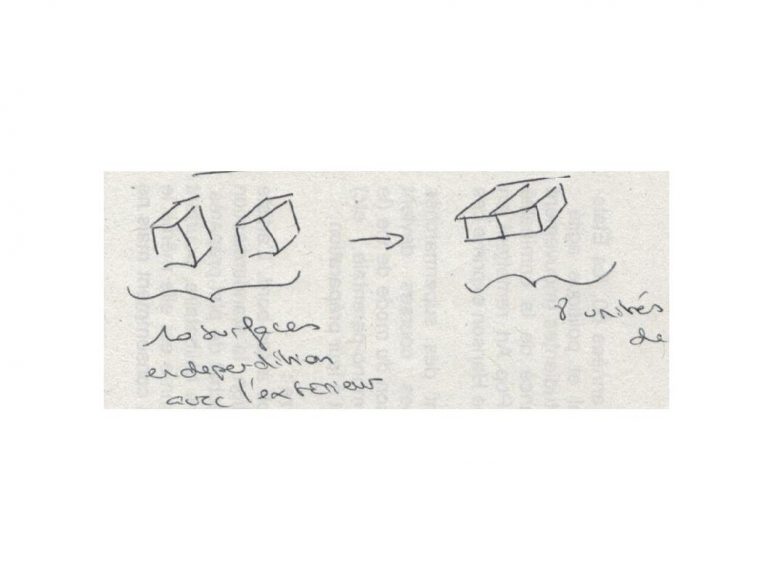 10 surfaces
en deperdition
avec l'exterieur
8 unités
de